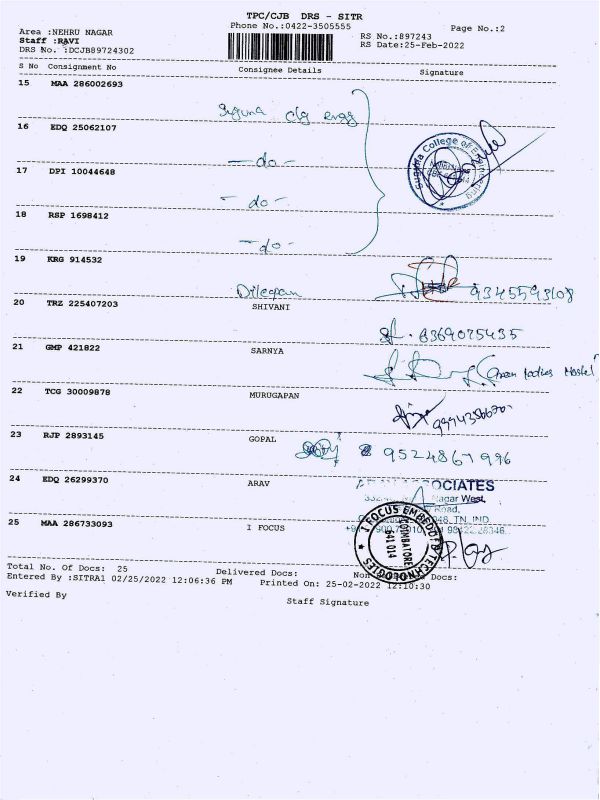 TPC/CJB DRS - SITR
Phone No.:0422-3505555
Page No.:2
Area :NEHRU NAGAR
Staff :RAVI
DRS No. :DCJB89724302
RS No.:897243
RS Date:25-Feb-2022
S No Consignment No Consignee Details Signature
15 MAA 286002693
Suguna clg engg
16 EDQ 25062107
- do -
Suguna College of Engineering
17 DPI 10044648
- do -
18 RSP 1698412
- do -
19 KRG 914532
9345593108
20 TRZ 225407203 SHIVANI
8369075435
21 GMP 421822 SARNYA
22 TCG 30009878 MURUGAPAN
23 RJP 2893145 GOPAL
9524867996
24 EDQ 26299370 ARAV
OCIATES
Nagar West,
Road,
TN, IND
25 MAA 286733093 I FOCUS
I FOCUS EMBEDDED TECHNOLOGIES
COIMBATORE
641 014
Total No. Of Docs: 25 Delivered Docs: Non Docs:
Entered By :SITRA1 02/25/2022 12:06:36 PM Printed On: 25-02-2022 12:10:30
Verified By Staff Signature